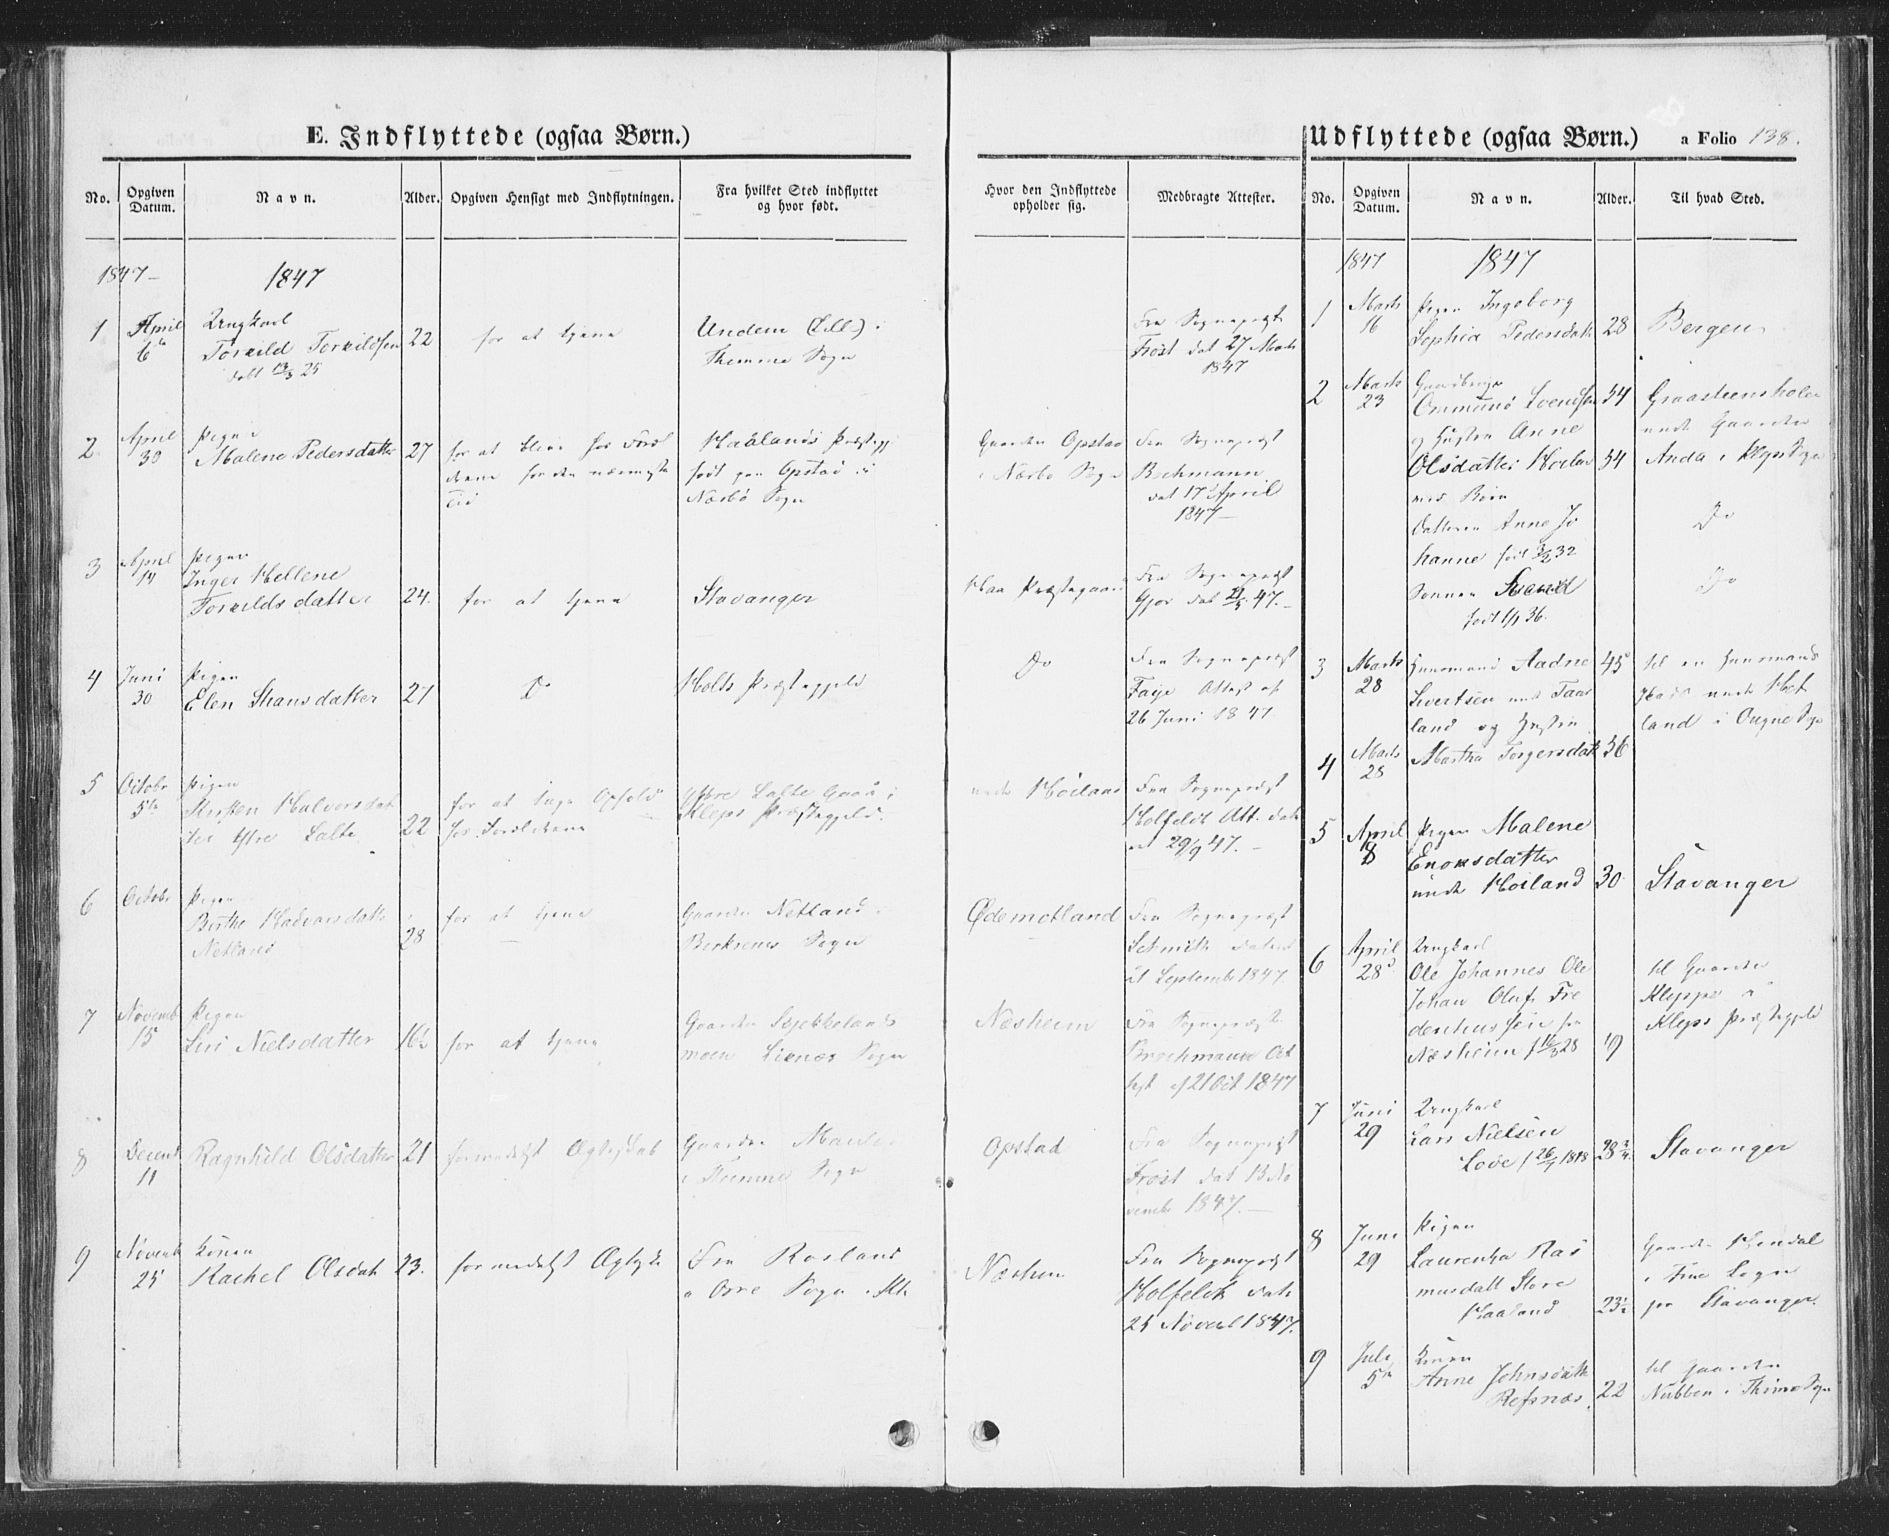 E. Indflyttede (ogsaa Børn.)
No.
Opgiven Datum.
Navn.
Alder.
Opgiven Hensigt med Indflytningen.
Fra hvilket Sted indflyttet
og hvor født.
1847-
1847
1
April
6te
Ungkarl
Torkild Torkildsen
født 13/3 25
22
for at tjene
Undem (Lille) i
Thimme Sogn
2
April
30
Pigen
Malene Pedersdatter
27
for at blive hos Foræl
drene for den nærmeste
Tid
Haalands Præstegj:
født paa Opstad i
Nærbø Sogn
3
April
14
Pigen
Inger Hellene
Torkildsdatter
24.
for at tjene
Stavanger
4
Juni
30
Pigen
Elen Hansdatter
27
Do
Holts Præstegjeld
5
Octobr
5te
Pigen
Kirsten Halvorsdat
ter Ytre Salte
22
for at tage Ophold
hos Forældrene
Ytre Salte Gaard i
Kleps Præstegjeld.
6
Octobr
Pigen
Birthe Hadvarsdatter
Netland
28
for at tjene
Gaarden Netland i
Sogn
7
Novemb
15
Pigen
Siri Nielsdatter
16½
for at tjene
Gaarden
moen Sogn
8
Decemb
11
Ragnhild Olsdatter
21
formedelst Ægteskab
Gaarden
i Thimme Sogn
9
Novemb
25
Konen
Rachel Olsdat
23.
formedelst Ægtesk
Fra Rosland
Orre Sogn
Hvor den Indflyttede
opholder sig.
Medbragte Attester.
Fra Sognepræst
Frost dat 27 Marts
1847
Gaarden Opstad
i Nærbø Sogn
Fra Sognepræst
dat 17de April
1847-
Haa Præstegaard
Fra Sognepræst
Gjør dat 47.-
Do
Fra Sognepræst
Faye Attest af
26 Juni 1847
under Høiland
Fra Sognepræst
Holfeldt Att. dat
29/9 47.-
Ødemotland
Fra Sognepræst
Schmith dateret
21 September 1847
Næsheim
Fra Sognepræst
Brochmann At
test af 21 Oct 1847
Opstad
Fra Sognepræst
Frost dat 13 No
vembr 1847.-
Næshem
Fra Sognepræst
Holfeldt dat
25 Novbr 1847.
Udflyttede (ogsaa Børn.)
a Folio 138.
No.
Opgiven Datum.
Navn.
Alder.
Til hvad Sted.
1847
1847
1
Marts
16
Pigen Ingeborg
Sophia Pedersdatt
28
Bergen
2
Marts
23
Gaardbruger
Ommund Svendsen
34
Graasteensholen
under Gaarden
og Hustru Anne
Olsdatter Høiland
34
Anda i Klep Sogn
med Børn
Datteren Anne Jo
hanne født 3/2 32
Do
Sønnen Svend
født 1/1 36.
Do
3
Marts
28
Huusmand Aadne
Sivertsen under Taar
land og Hustru
45
til en Huusmands
Plads under Høt
land i Ougne Sogn
4
Marts
28
Martha Torgersdatt
36
5
April
8
Pigen Malene
Enoksdatter
under Høiland
30
Stavanger
6
April
28d
Ungkarl
Ole Johannes Ole
Johan Oluf Fre
derichussen fra
Næsheim f 16/3 28
19
til Gaarden
Kleppe i
Kleps Præstegjeld
7
Juni
29
Ungkarl
Lars Nielsen
Lode f 26/9 1818
28¾
Stavanger
8
Juni
29
Pigen
Laurentza Ras
musdatt Store
Haaland
23½
Gaarden
i Sogn
for Stavanger.
9
Juli
5te
Konen
Anne Johnsdatt
Refsnæs.
22
til Gaarden
Nubben i Thime Sogn